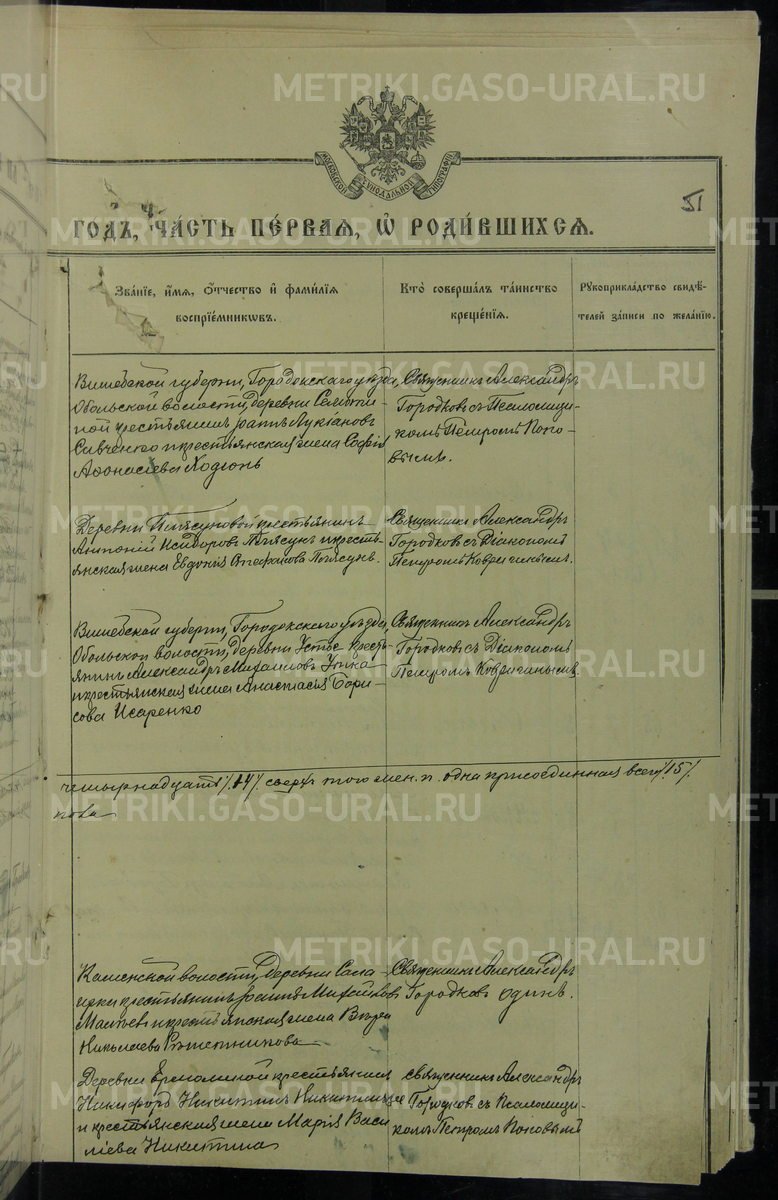 METRIKI.GASO-URAL.RU
МОСКОВСКОЙ СѴНОДАЛЬНОЙ ТИПОГРАФІИ
51
ГОДЪ, ЧАСТЬ ПЕРВАЯ, Ѡ РОДИВШИХСЯ.
Званіе, имя, отчество и фамилія воспріемниковъ.
Кто совершалъ таинство крещенія.
Рукоприкладство свидѣтелей записи по желанію.
Витебской губерніи, Городокскаго уѣзда,
Обольской волости, деревни
крестьянинъ Іоаннъ Лукіановъ
Савченко и крестьянская жена Софія
Аѳонасіева Ходюнь
Священникъ Александръ
Городковъ съ Псаломщи-
комъ Петромъ Попо-
вымъ.
Деревни крестьянинъ
Антоній Исидоровъ и кресть-
янская жена Евдокія Стефанова
Священникъ Александръ
Городковъ съ Діакономъ
Петромъ Ковригинымъ.
Витебской губерніи, Городокскаго уѣзда,
Обольской волости, деревни Устье крестъ-
янинъ Александръ Михаиловъ
и крестьянская жена Анастасія Бори-
сова Исаренко
Священникъ Александръ
Городковъ съ Діакономъ
Петромъ Ковригинымъ.
четырнадцать /14/ сверхъ того жен. п. одна присоединенная всего /15/
Каменской волости, деревни
крестьянинъ Іоаннъ Михайловъ
и крестьянская жена Вѣра
Николаева Рѣшетникова
Священникъ Александръ
Городковъ одинъ.
Деревни Ермолиной крестьянинъ
Никифоръ Никитинъ
и крестьянская жена Марія Васи
ліева Никитина
Священникъ Александръ
Городковъ съ Псаломщи-
комъ Петромъ Поповымъ